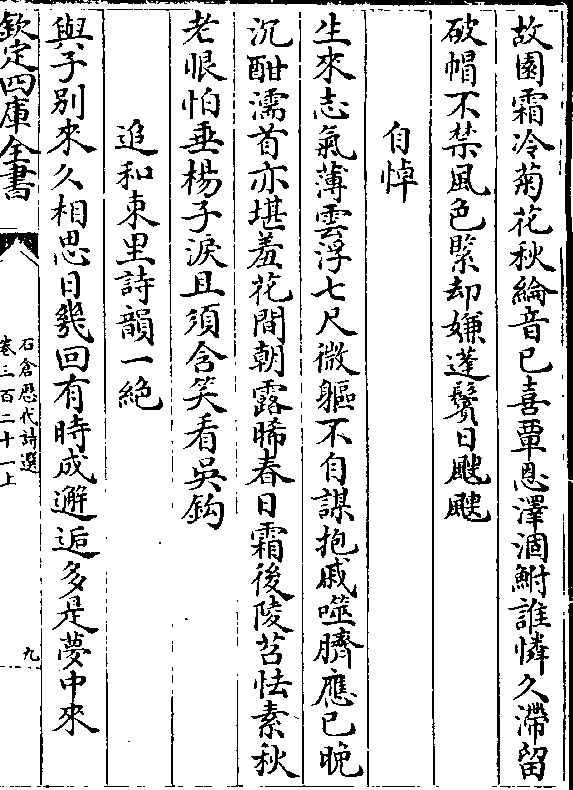 故園霜冷菊花秋綸音已喜覃恩澤涸鮒誰憐久滯留
破帽不禁風色緊却嫌蓬鬢日颼颼
自悼
生來志氣薄雲浮七尺微軀不自謀抱戚噬臍應已晚
沉酣濡首亦堪羞花間朝露晞春日霜後陵苕怯素秋
老恨怕垂楊子淚且須含笑看吳鈎
追和東里詩韻一絶
與子別來久相思日幾回有時成邂逅多是夢中來
欽定四庫全書
石倉歴代詩選
卷三百二十一上
九